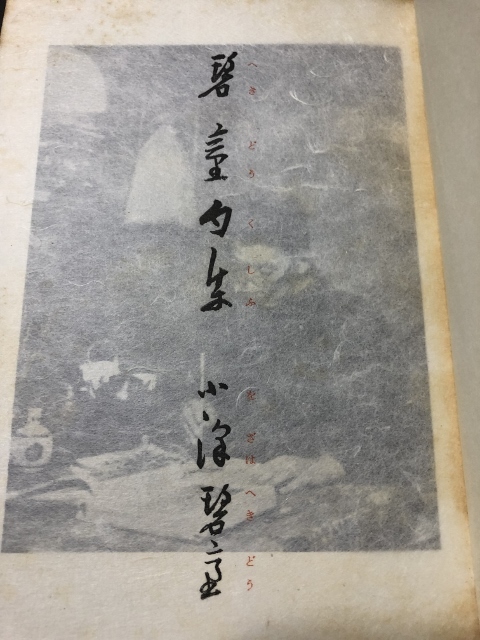 碧童句集　小澤碧童
へきどうくしふ　をざはへきどう